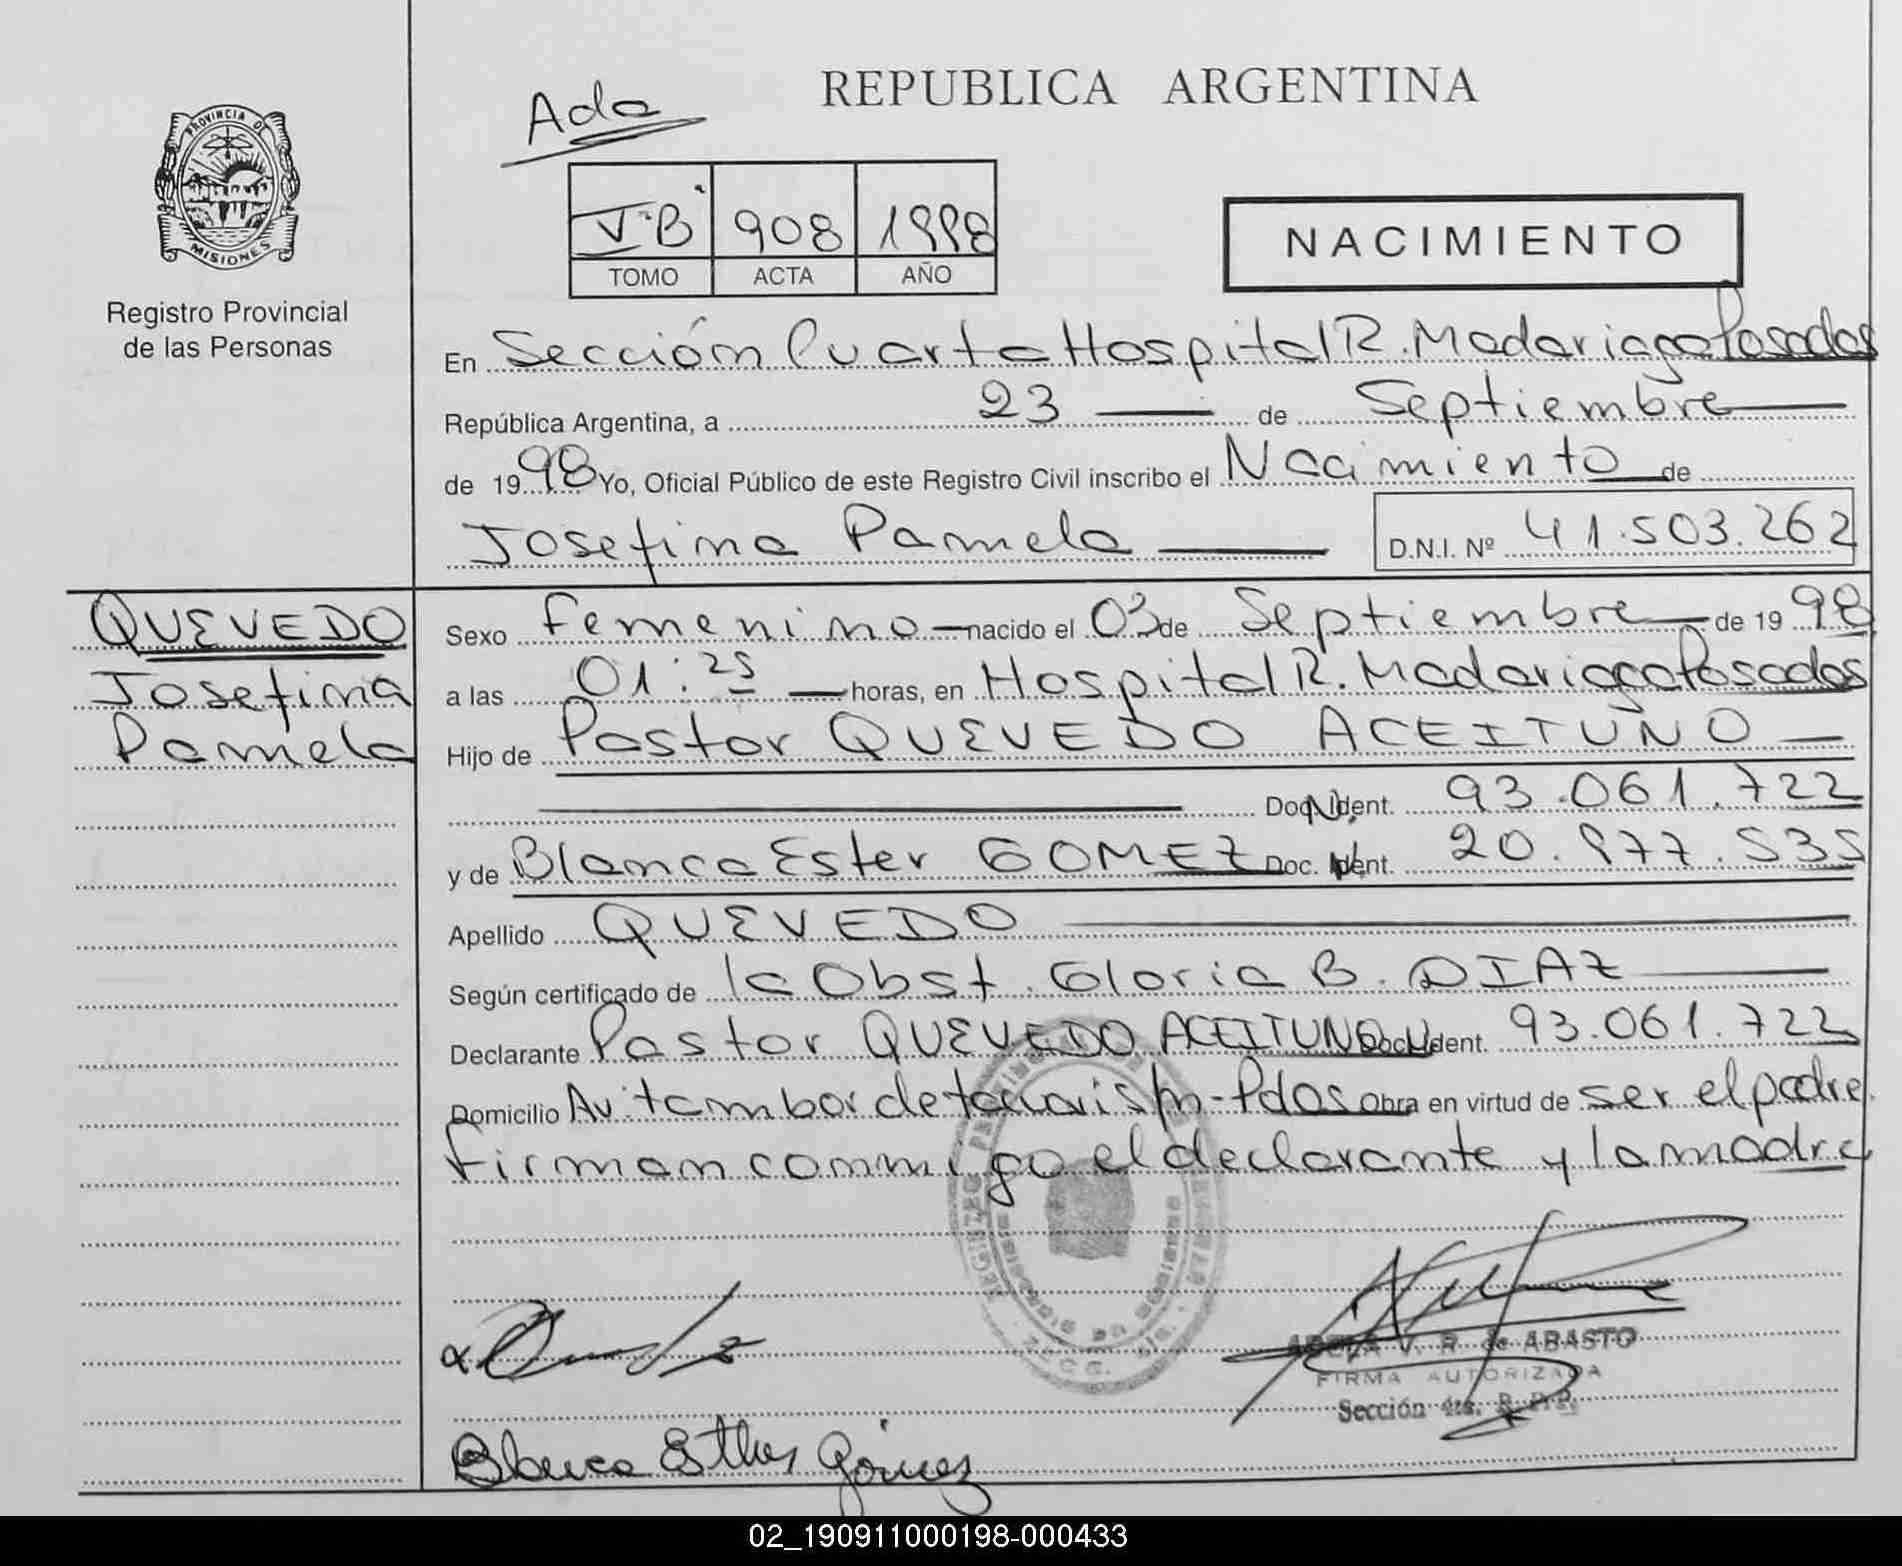 REPUBLICA ARGENTINA
Ada
PROVINCIA DE
MISIONES
Registro Provincial
de las Personas
V-B 908 1998
TOMO ACTA AÑO
NACIMIENTO
En Sección Cuarta Hospital R. Madariaga Posadas
República Argentina, a 23 de Septiembre
de 1998 Yo, Oficial Público de este Registro Civil inscribo el Nacimiento de
Josefina Pamela D.N.I. Nº 41.503.262
QUEVEDO
Josefina
Pamela
Sexo femenino nacido el 03 de Septiembre de 1998
a las 01:25 horas, en Hospital R. Madariaga Posadas
Hijo de Pastor QUEVEDO ACEITUÑO
Doc. Ident. 93.061.722
y de Blanca Ester GOMEZ Doc. Ident. 20.977.535
Apellido QUEVEDO
Según certificado de la Obst. Gloria B. DIAZ
Declarante Pastor QUEVEDO ACEITUNO Doc. Ident. 93.061.722
Domicilio Av. tambor de tacuari s/n - Pdas Obra en virtud de ser el padre.
firman conmigo el declarante y la madre
ADELA V. R. de ABASTO
FIRMA AUTORIZADA
Sección 4ta. R.P.P.
Blanca Esther Gómez
02_190911000198-000433